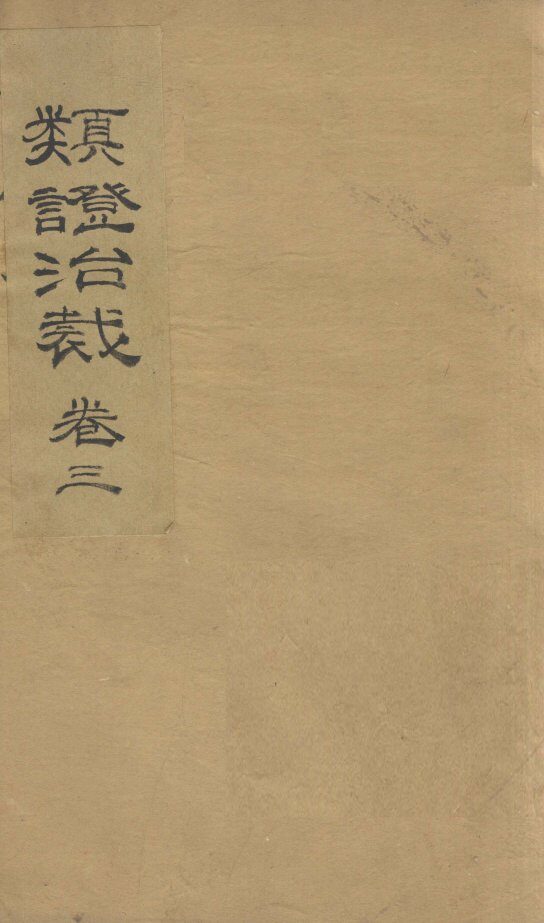 類證治裁 卷三